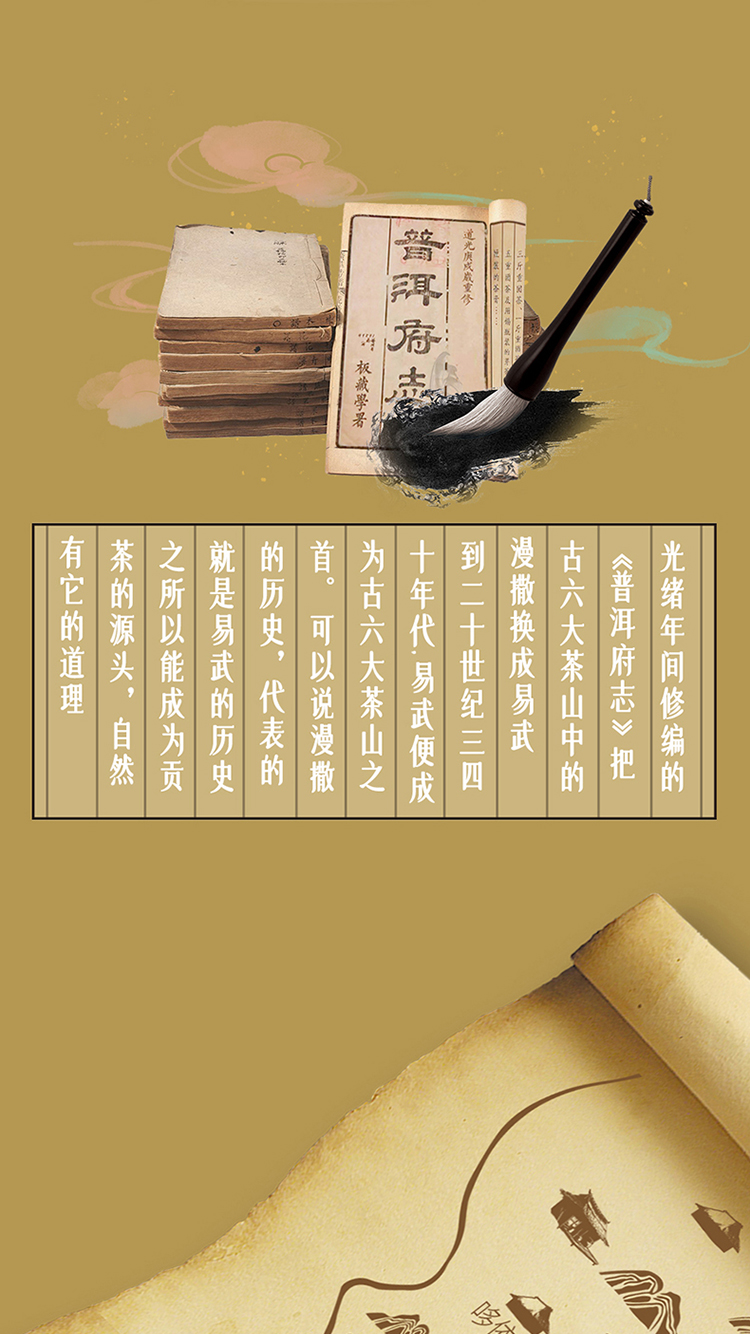 道光庚戌歲重修
普洱府志
板藏學署
光绪年间修编的
《普洱府志》把
古六大茶山中的
漫撒换成易武
到二十世纪三四
十年代.易武便成
为古六大茶山之
首。可以说漫撒
的历史，代表的
就是易武的历史
之所以能成为贡
茶的源头，自然
有它的道理
哆依